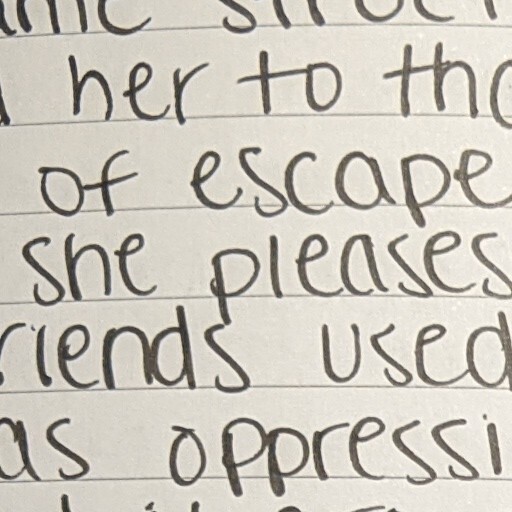 her to the
of escape
she pleases
riends used
as oppressi